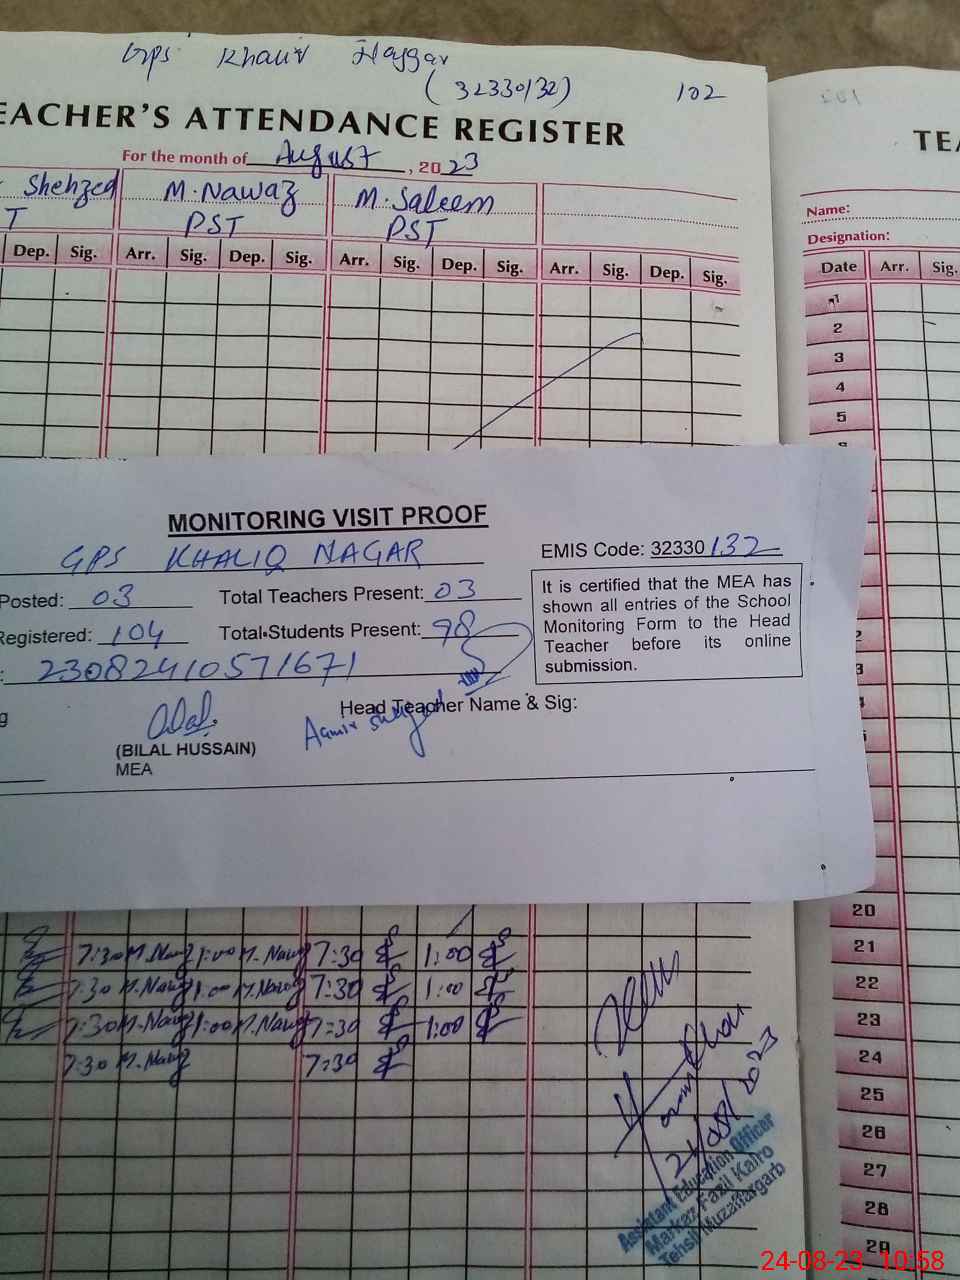 GPS Khaliq Naggar
(32330132) 102
TEACHER'S ATTENDANCE REGISTER
For the month of August, 2023
Shehzed M. Nawaz M. Saleem
T PST PST
Dep. Sig. Arr. Sig. Dep. Sig. Arr. Sig. Dep. Sig. Arr. Sig. Dep. Sig.
MONITORING VISIT PROOF
GPS KHALIQ NAGAR EMIS Code: 32330132
Posted: 03 Total Teachers Present: 03
Registered: 104 Total Students Present: 98
: 23082410571671
It is certified that the MEA has
shown all entries of the School
Monitoring Form to the Head
Teacher before its online
submission.
g
Head Teacher Name & Sig:
Aamir Shehzad
(BILAL HUSSAIN)
MEA
7:30 M.Nawaz 1:00 M.Nawaz 7:30 1:00
7:30 M.Nawaz 1:00 M.Nawaz 7:30 1:00
7:30 M.Nawaz 1:00 M.Nawaz 7:30 1:00
7:30 M.Nawaz 7:30
21/08/2023
Assistant Education Officer
Markaz Fazil Kalro
Tehsil Muzaffargarh
TEA
Name:
Designation:
Date Arr. Sig.
1
2
3
4
5
20
21
22
23
24
25
26
27
28
29
24-08-23 10:58